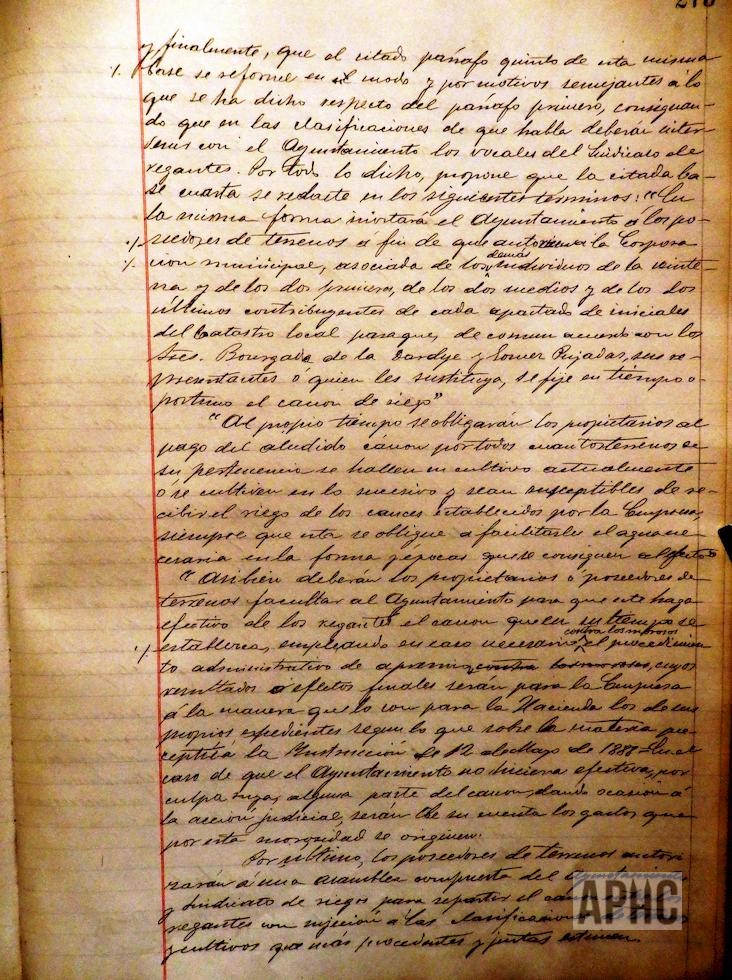 y finalmente, que el citado párrafo quinto de esta misma
base se reforme en el modo y por motivos semejantes a lo
que se ha dicho respecto del párrafo primero, consignan-
do que en las clasificaciones de que habla deberán inter-
venir con el Ayuntamiento los vocales del Sindicato de
regantes. Por todo lo dicho, propone que la citada ba-
se cuarta se redacte en los siguientes términos: "En
la misma forma instará el Ayuntamiento a los po-
seedores de terrenos a fin de que autoricen a la Corpora
ción municipal, asociada de los demás individuos de la veinte-
na y de los dos primeros, de los dos medios y de los dos
últimos contribuyentes de cada apartado de iniciales
del Catastro local para que, de comun acuerdo con los
Sres. Bourgade de la Dardye y Pujadas, sus re-
presentantes ó quien les sustituya, se fije en tiempo o-
portuno el canon de riego"
"Al propio tiempo se obligarán los propietarios al
pago del aludido cánon por todos cuantos terrenos de
su pertenencia se hallen en cultivo actualmente
ó se cultiven en lo sucesivo y sean susceptibles de re-
cibir el riego de los cauces establecidos por la Empresa,
siempre que esta se obligue a facilitarles el agua ne-
cesaria en la forma y epocas que se consignen al efecto
"Asibien deberán los propietarios ó poseedores de
terrenos facultar al Ayuntamiento para que este haga
efectivo de los regantes el canon que en su tiempo se
establezca, empleando en caso necesario contra los morosos el procedimien
to administrativo de apremio contra los morosos, cuyos
resultados ó efectos finales serán para la Empresa
á la manera que lo son para la Hacienda los de sus
propios expedientes segun lo que sobre la materia pre-
ceptúa la Instrucción de 12 de Mayo de 1888. En el
caso de que el Ayuntamiento no hiciera efectiva, por
culpa suya, alguna parte del canon, dando ocasión á
la acción judicial, serán de su cuenta los gastos que
por esta morosidad se originen.
Por último, los poseedores de terrenos autori
zarán á una asamblea compuesta del Ayuntamiento
y Sindicato de riegos para repartir el
regantes con sujeción a las clasificaciones
y cultivos que más procedentes y justas estimen.
APHC